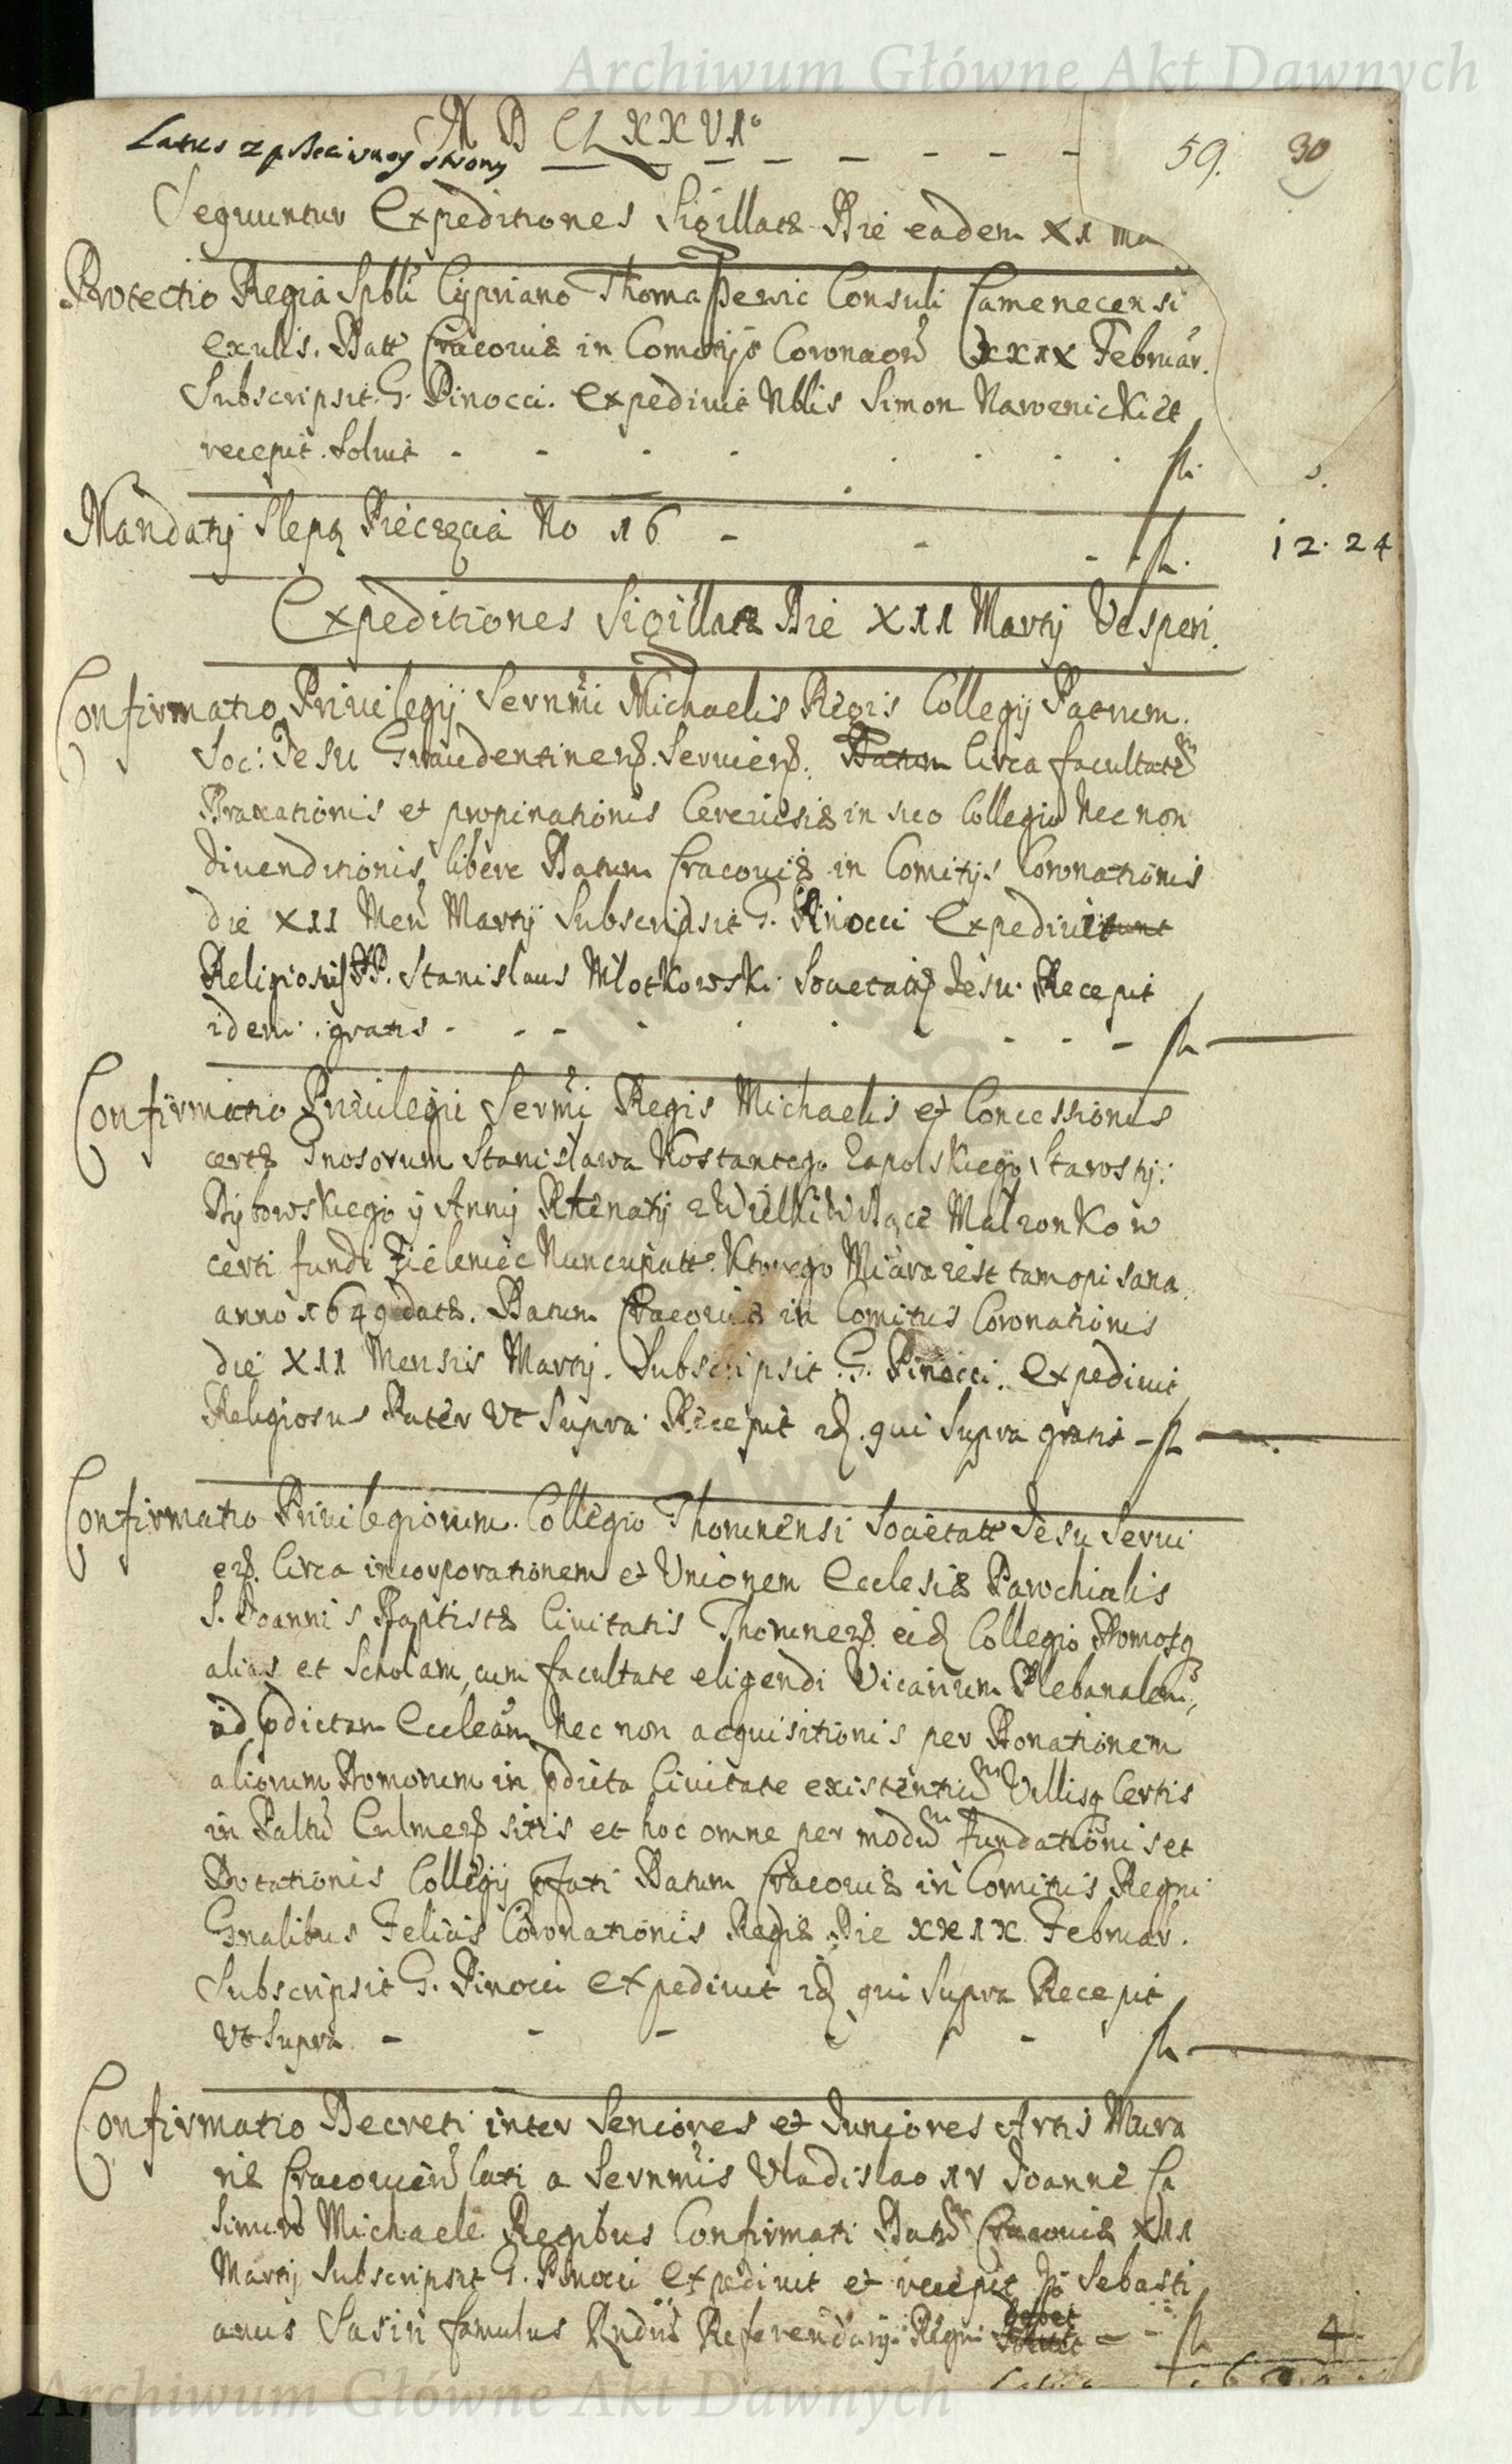 Archiwum Główne Akt Dawnych
M D CLXXVI°
Latus z przeciwney strony 59. 30
Sequuntur Expeditiones Sigillatæ Die eadem XI Ma
Protectio Regia Spbli Cypriano Thomaszewic Consuli Camenecensi
exulis. Datt Cracoviæ in Comitijs Coronaōn XXIX Februar.
Subscripsit G. Pinocci. Expedivit Nblis Simon Nawenicki et
recepit. Solvit - - - - fl.
Mandaty Slepą Pieczęcią No 16 - - - fl. 12. 24
Expeditiones Sigillatæ Die XII Martij Vesperi.
Confirmatio Privilegij Sernmi Michaelis Regis Collegij Patrum.
Soc: Jesu Graudentinens. Serviens. Datum Circa facultatē
Braxationis et propinationis Cerevisiæ in suo Collegio Nec non
divenditionis libere Datum Cracoviæ in Comitijs Coronationis
die XII Men Martij Subscripsit G. Pinocci Expediverunt
Religiosus P. Stanislaus Młotkowski Societatis Jesu. Recepit
idem. gratis - - - - - - fl
Confirmatio Privilegii Sermi Regis Michaelis et Concessionis
certæ Gnosorum Stanisława Kostantego Zapolskiego Starosty
Dybowskiego y Anny Renaty z Małzonkow
certi fundi Zieleniec Nuncupatt. Ktorego Miara iest tam opisana
anno 1649 datæ. Datum Cracoviæ in Comitiis Coronationis
die XII Mensis Martij. Subscripsit G. Pinocci. Expedivit
Religiosus Pater Ut Supra Recepit id. qui Supra gratis - fl
Confirmatio Privilegiorum. Collegio Thorunensi Societatt Jesu Servi
ens. Circa incorporationem et Unionem Ecclesiæ Parochialis
S. Joannis Baptistæ Civitatis Thorunens. eid Collegio Domosq
alias et Scholam, cum facultate eligendi Vicarium Plebanalem,
ad pdictam Eccleām Nec non acquisitionis per Donationem
aliorum Domorum in pdicta Civitate existentiū Villisq Certis
in Paltū Culmens sitis et hoc omne per modū fundationis et
Dotationis Collegij pfati Datum Cracoviæ in Comitiis Regni
Gnalibus Felicis Coronationis Regiæ Die XXIX Februar.
Subscripsit G. Pinocci Expedivit id qui Supra Recepit
Ut Supra - - - - fl
Confirmatio Decreti inter Seniores et Juniores Artis Mura
riæ Cracovien lati a Sernmis Vladislao IV Joanne Ca
simiro Michaele Regibus Confirmati Datū Cracoviæ XII
Martij Subscripsit G. Pinocci Expedivit et recepit Sebasti
anus Sasin famulus Rndi Referendarij Regni debet Solvit - - fl 4
Archiwum Główne Akt Dawnych